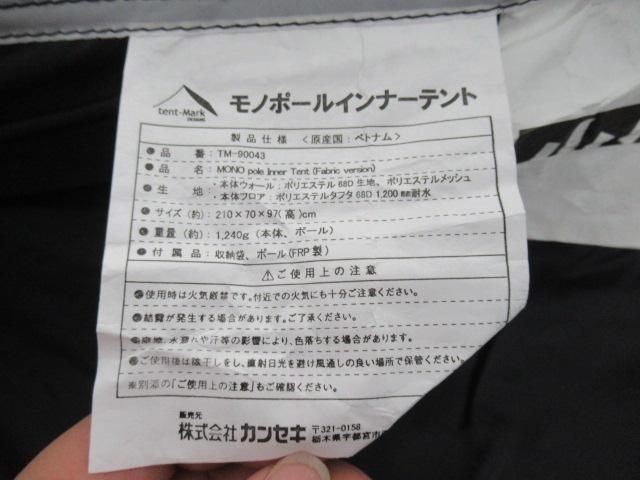 tent-Mark
DESIGNS
モノポールインナーテント
製品仕様 〈原産国：ベトナム〉
●品　　番：TM-90043
●品　　名：MONO pole Inner Tent (Fabric version)
●生　　地：・本体ウォール：ポリエステル 68D 生地、ポリエステルメッシュ
・本体フロア：ポリエステルタフタ 68D 1,200 mm耐水
●サイズ（約）：210×70×97(高)cm
●重量（約）：1,240g（本体、ポール）
●付属品：収納袋、ポール(FRP製)
⚠ご使用上の注意
●使用時は火気厳禁です。付近での火気にも十分ご注意ください。
●結露が発生する場合があります。ご了承ください。
●摩擦、水濡れや汗等の影響により、色落ちする場合があります。
●ご使用後は陰干しをし、直射日光を避け風通しの良い場所で保管ください。
※別添の「ご使用上の注意」もご確認ください。
販売元
株式会社 カンセキ 〒321-0158
栃木県宇都宮市